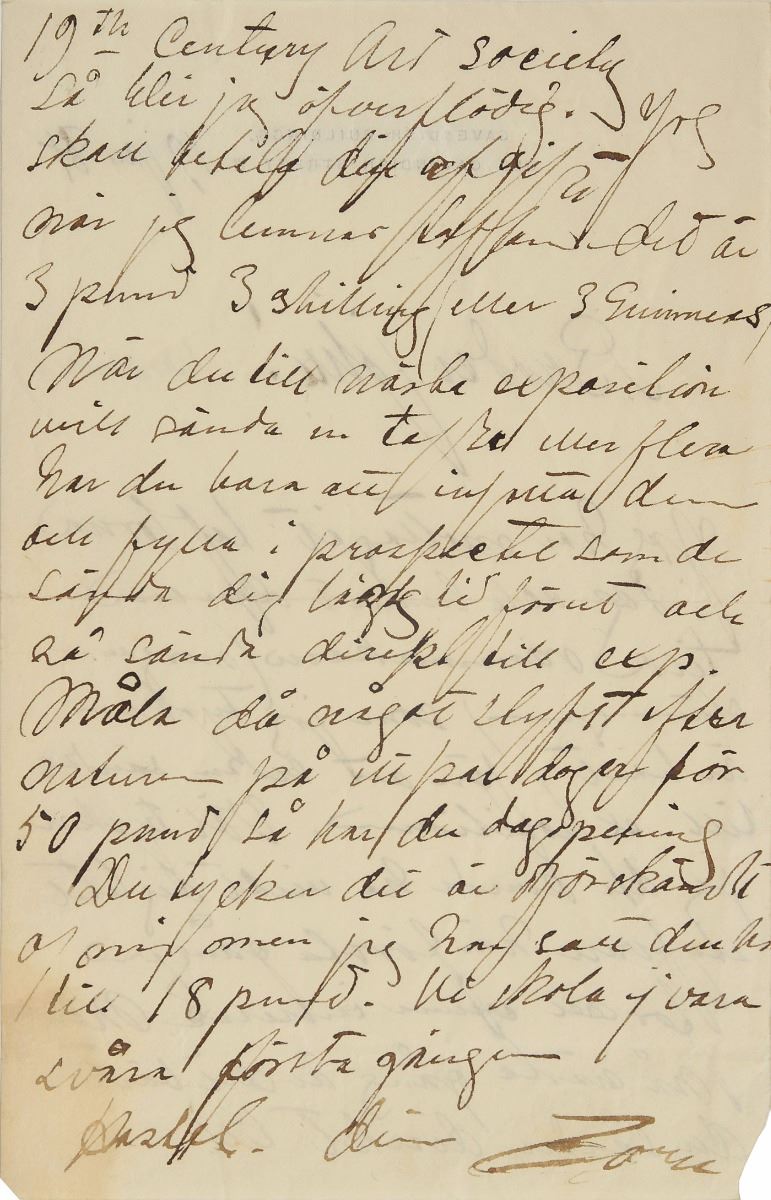 19th Century Art society
så blir jag öfverflödig. Jag
skall betala din afgift
när jag lemnar det är
3 pund 3 shilling eller 3 Guineas
När du till nästa exposition
will sända en tafla eller flera
har du bara att inpacka dem
och fylla i prospectet som de
sända dig långt förut och
så sända direkt till exp.
Måla då något styft efter
naturen på ett par dagar för
50 pund så har du dagspening
Du tycker det är oförskämdt
af mig men jag har satt den
till 18 pund. Vi skola ej vara
svåra första gången
din Zorn